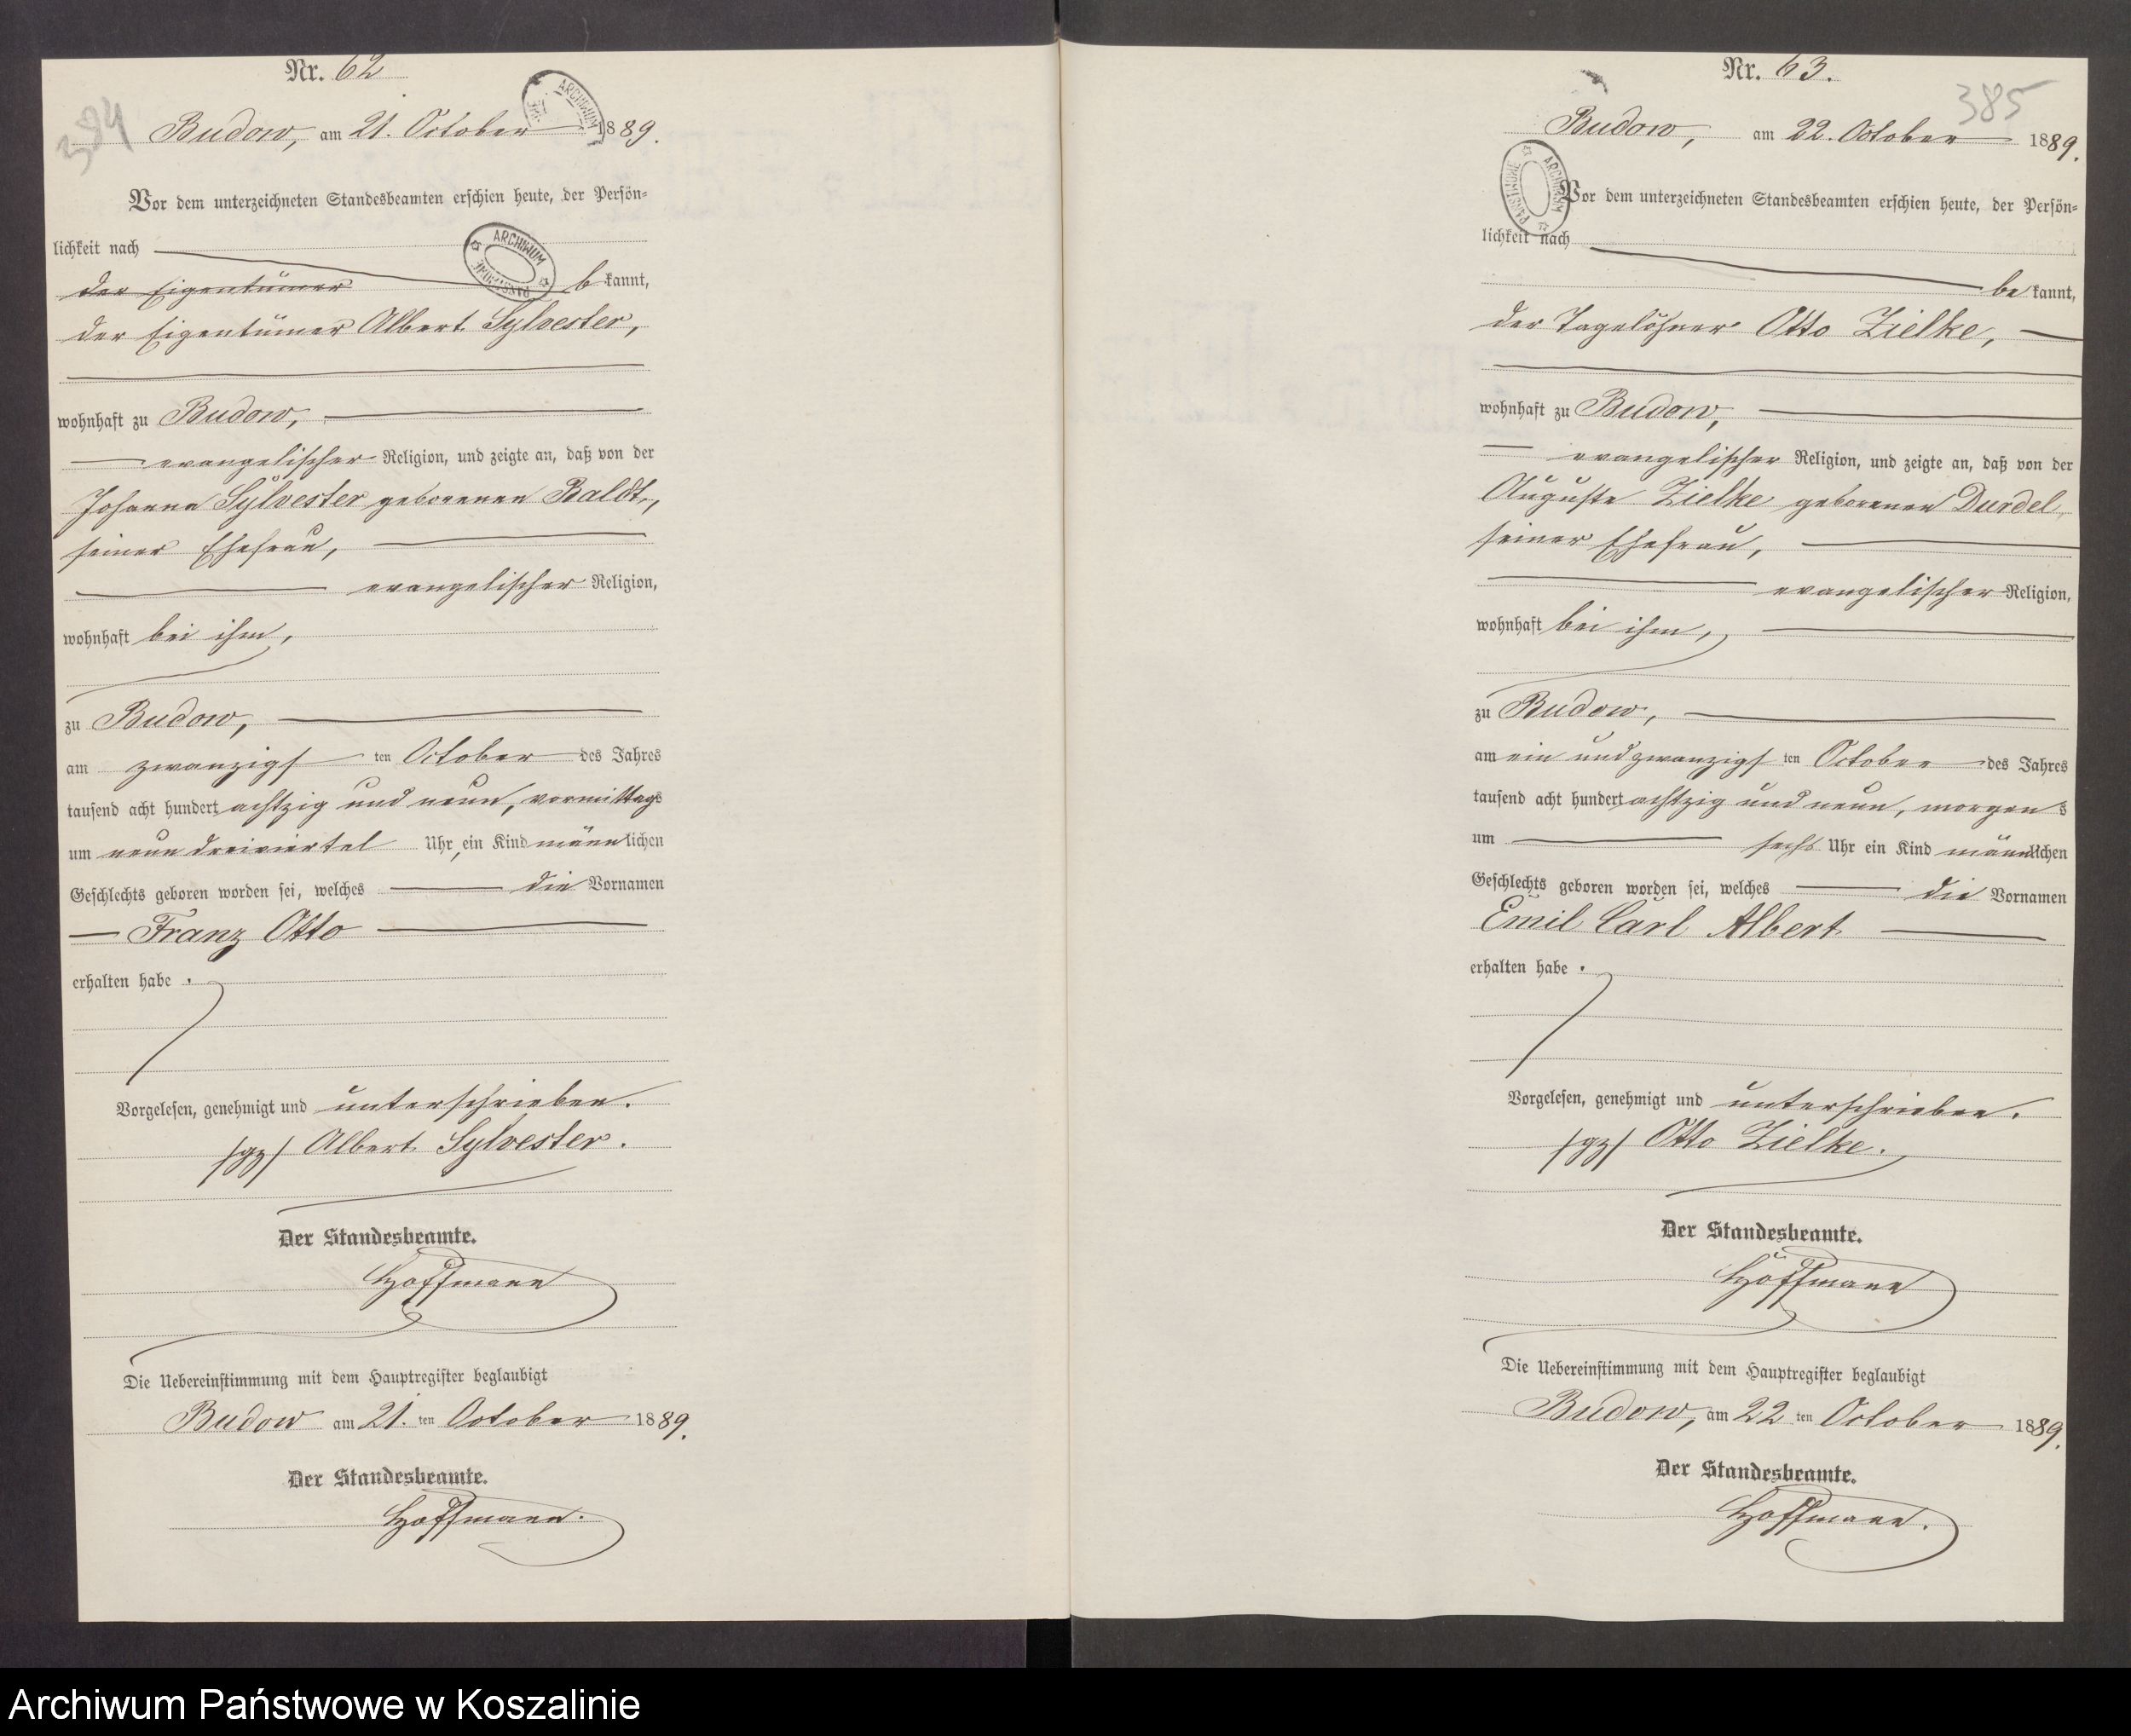 Nr. 62
384
Budow, am 21. October 1889.
ARCHIWUM
Vor dem unterzeichneten Standesbeamten erschien heute, der Persön-
lichkeit nach
ARCHIWUM PAŃSTWOWE
der Eigentümer b kannt,
der Eigentümer Albert Sylvester,
wohnhaft zu Budow,
evangelischer Religion, und zeigte an, daß von der
Johanna Sylvester geborenen Baldt,
seiner Ehefrau,
evangelischer Religion,
wohnhaft bei ihm,
zu Budow,
am zwanzigsten October des Jahres
tausend acht hundert achtzig und neun, vormittags
um neun dreiviertel Uhr, ein Kind männlichen
Geschlechts geboren worden sei, welches die Vornamen
Franz Otto
erhalten habe.
Vorgelesen, genehmigt und unterschrieben.
/gz/ Albert Sylvester.
Der Standesbeamte.
Hoffmann
Die Uebereinstimmung mit dem Hauptregister beglaubigt
Budow am 21. ten October 1889.
Der Standesbeamte.
Hoffmann.
Nr. 63.
385
Budow, am 22. October 1889.
ARCHIWUM PAŃSTWOWE
Vor dem unterzeichneten Standesbeamten erschien heute, der Persön-
lichkeit nach
be kannt,
der Tagelöhner Otto Zielke,
wohnhaft zu Budow,
evangelischer Religion, und zeigte an, daß von der
Auguste Zielke geborenen Durdel,
seiner Ehefrau,
evangelischer Religion,
wohnhaft bei ihm,
zu Budow,
am ein und zwanzigsten October des Jahres
tausend acht hundert achtzig und neun, morgens
um sechs Uhr ein Kind männlichen
Geschlechts geboren worden sei, welches die Vornamen
Emil Carl Albert
erhalten habe.
Vorgelesen, genehmigt und unterschrieben.
/gz/ Otto Zielke.
Der Standesbeamte.
Hoffmann
Die Uebereinstimmung mit dem Hauptregister beglaubigt
Budow, am 22 ten October 1889.
Der Standesbeamte.
Hoffmann.
Archiwum Państwowe w Koszalinie